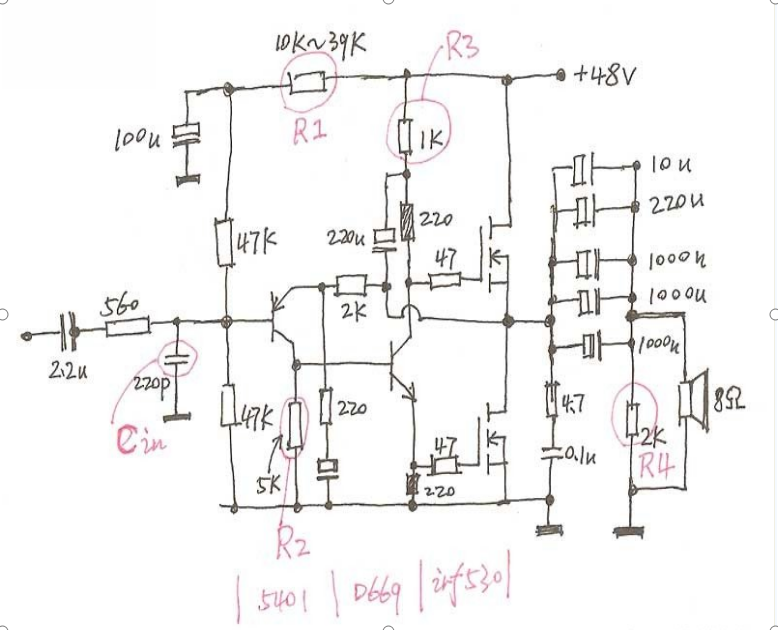 10K~39K
R3
+48V
R1
100u
1K
10u
220u
220
220u
47
47K
1000u
1000u
560
2K
1000u
2.2u
220p
8Ω
47K
220
4.7
47
2K
Cin
5K
0.1u
R4
220
R2
| 5401 | D669 | irf530 |